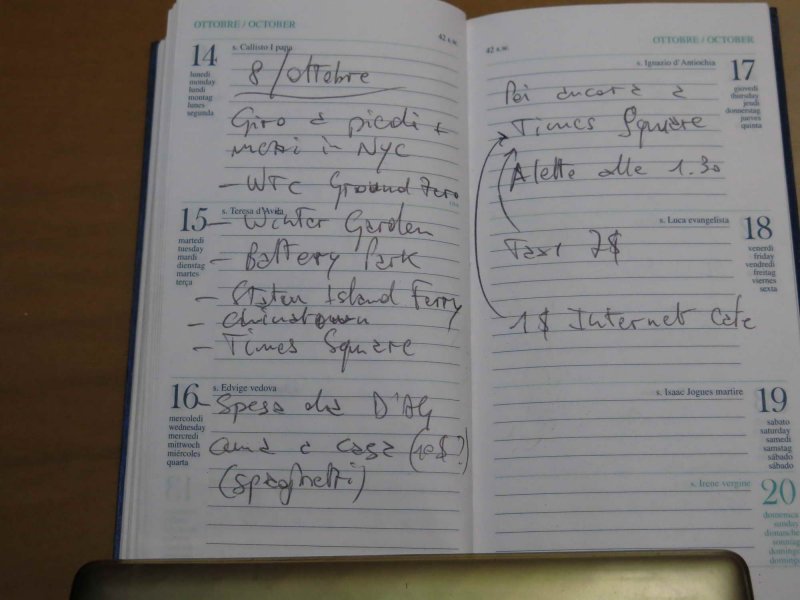 OTTOBRE / OCTOBER
42 s.w.
14
s. Callisto I papa
lunedì
monday
lundi
montag
lunes
segunda
8/ottobre
Giro a piedi +
mezzi in NYC
- WTC Ground Zero
15
s. Teresa d'Avila
martedì
tuesday
mardi
dienstag
martes
terça
- Winter Garden
- Battery Park
- Staten Island Ferry
- Chinatown
- Times Square
16
s. Edvige vedova
mercoledì
wednesday
mercredi
mittwoch
miércoles
quarta
- Spesa da D'AG
cena a casa (10$?)
(spaghetti)
OTTOBRE / OCTOBER
42 s.w.
s. Ignazio d'Antiochia
17
giovedì
thursday
jeudi
donnerstag
jueves
quinta
Poi ancora a
Times Square
A letto alle 1.30
s. Luca evangelista
18
venerdì
friday
vendredi
freitag
viernes
sexta
Taxi 7$
1$ Internet Cafe
s. Isaac Jogues martire
19
sabato
saturday
samedi
samstag
sábado
sábado
s. Irene vergine
20
domenica
sunday
dimanche
sonntag
domingo
domingo